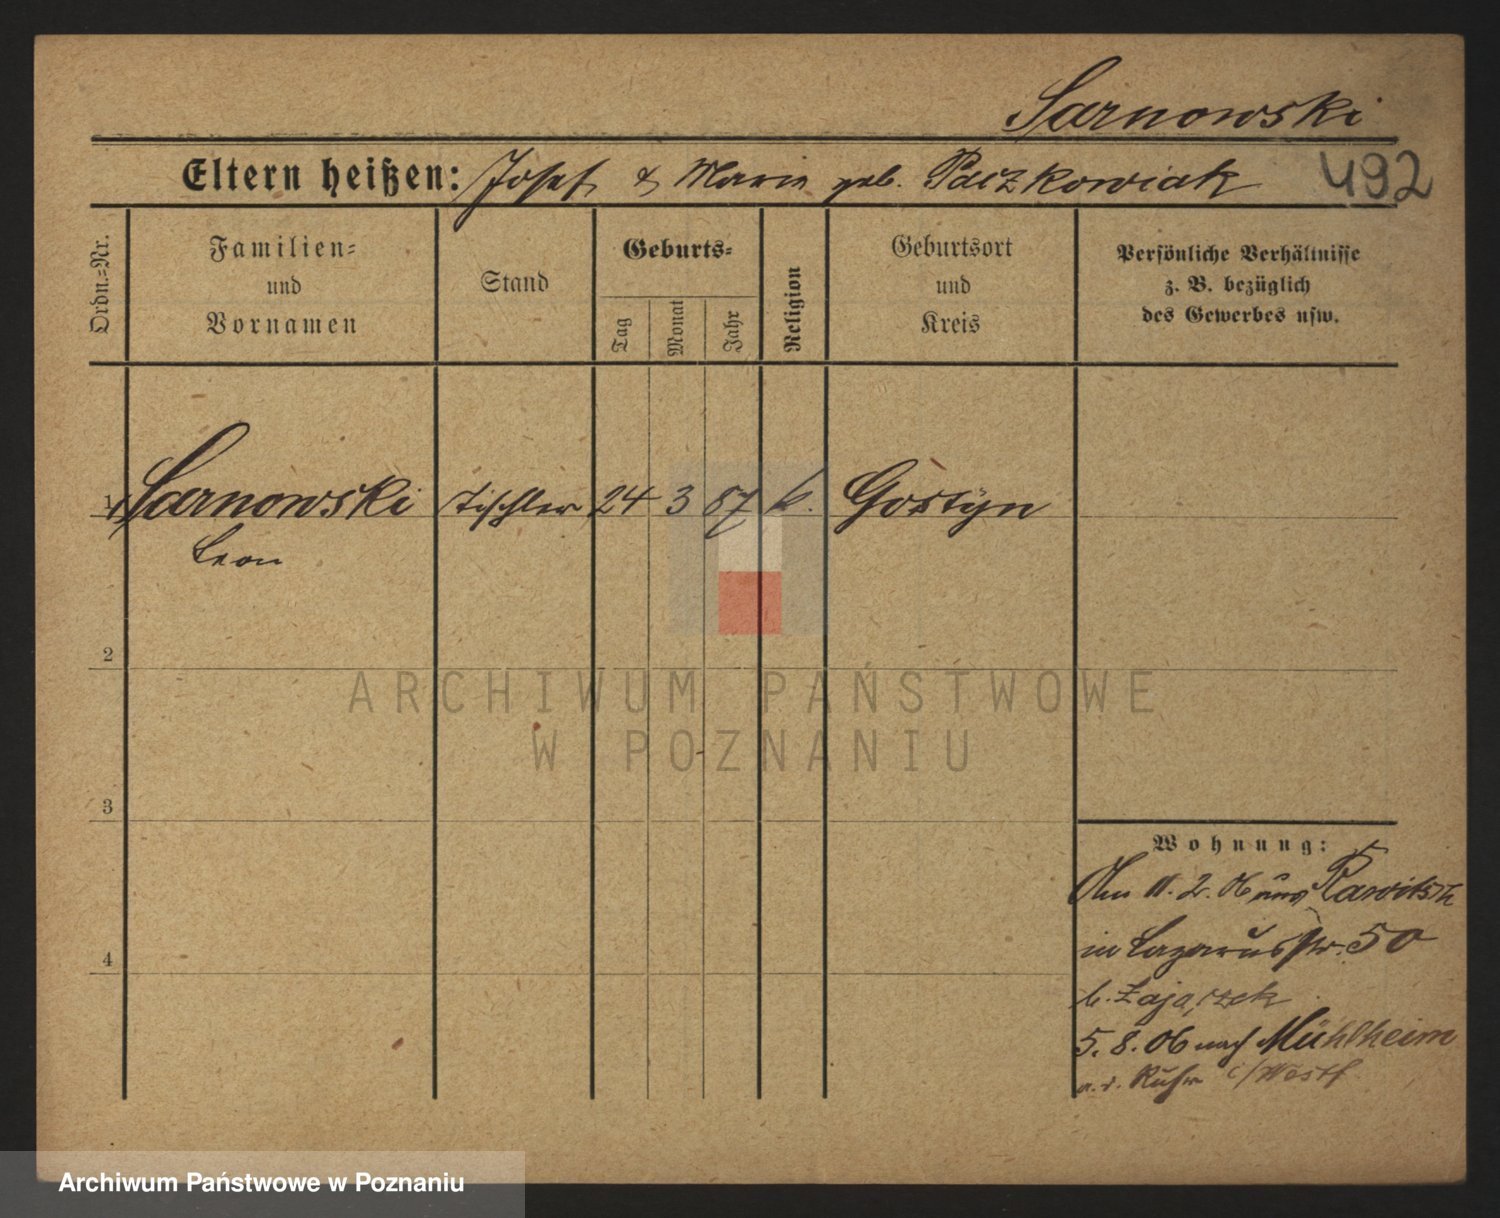 Sarnowski
Eltern heißen: Josef & Marie geb. Paczkowiak 492
Ordn.-Nr.
Familien-
und
Vornamen
Stand
Geburts-
Tag
Monat
Jahr
Religion
Geburtsort
und
Kreis
Persönliche Verhältnisse
z. B. bezüglich
des Gewerbes usw.
1 Sarnowski Tischler 24 3 87 k. Gostyn
Leon
2
3
4
ARCHIWUM PAŃSTWOWE
W POZNANIU
Wohnung:
Am 11. 2. 06 aus Rawitsch
in Lazarusstr. 50
b. Zajączek
5. 8. 06 nach Mühlheim
a. d. Ruhr i/Westf
Archiwum Państwowe w Poznaniu